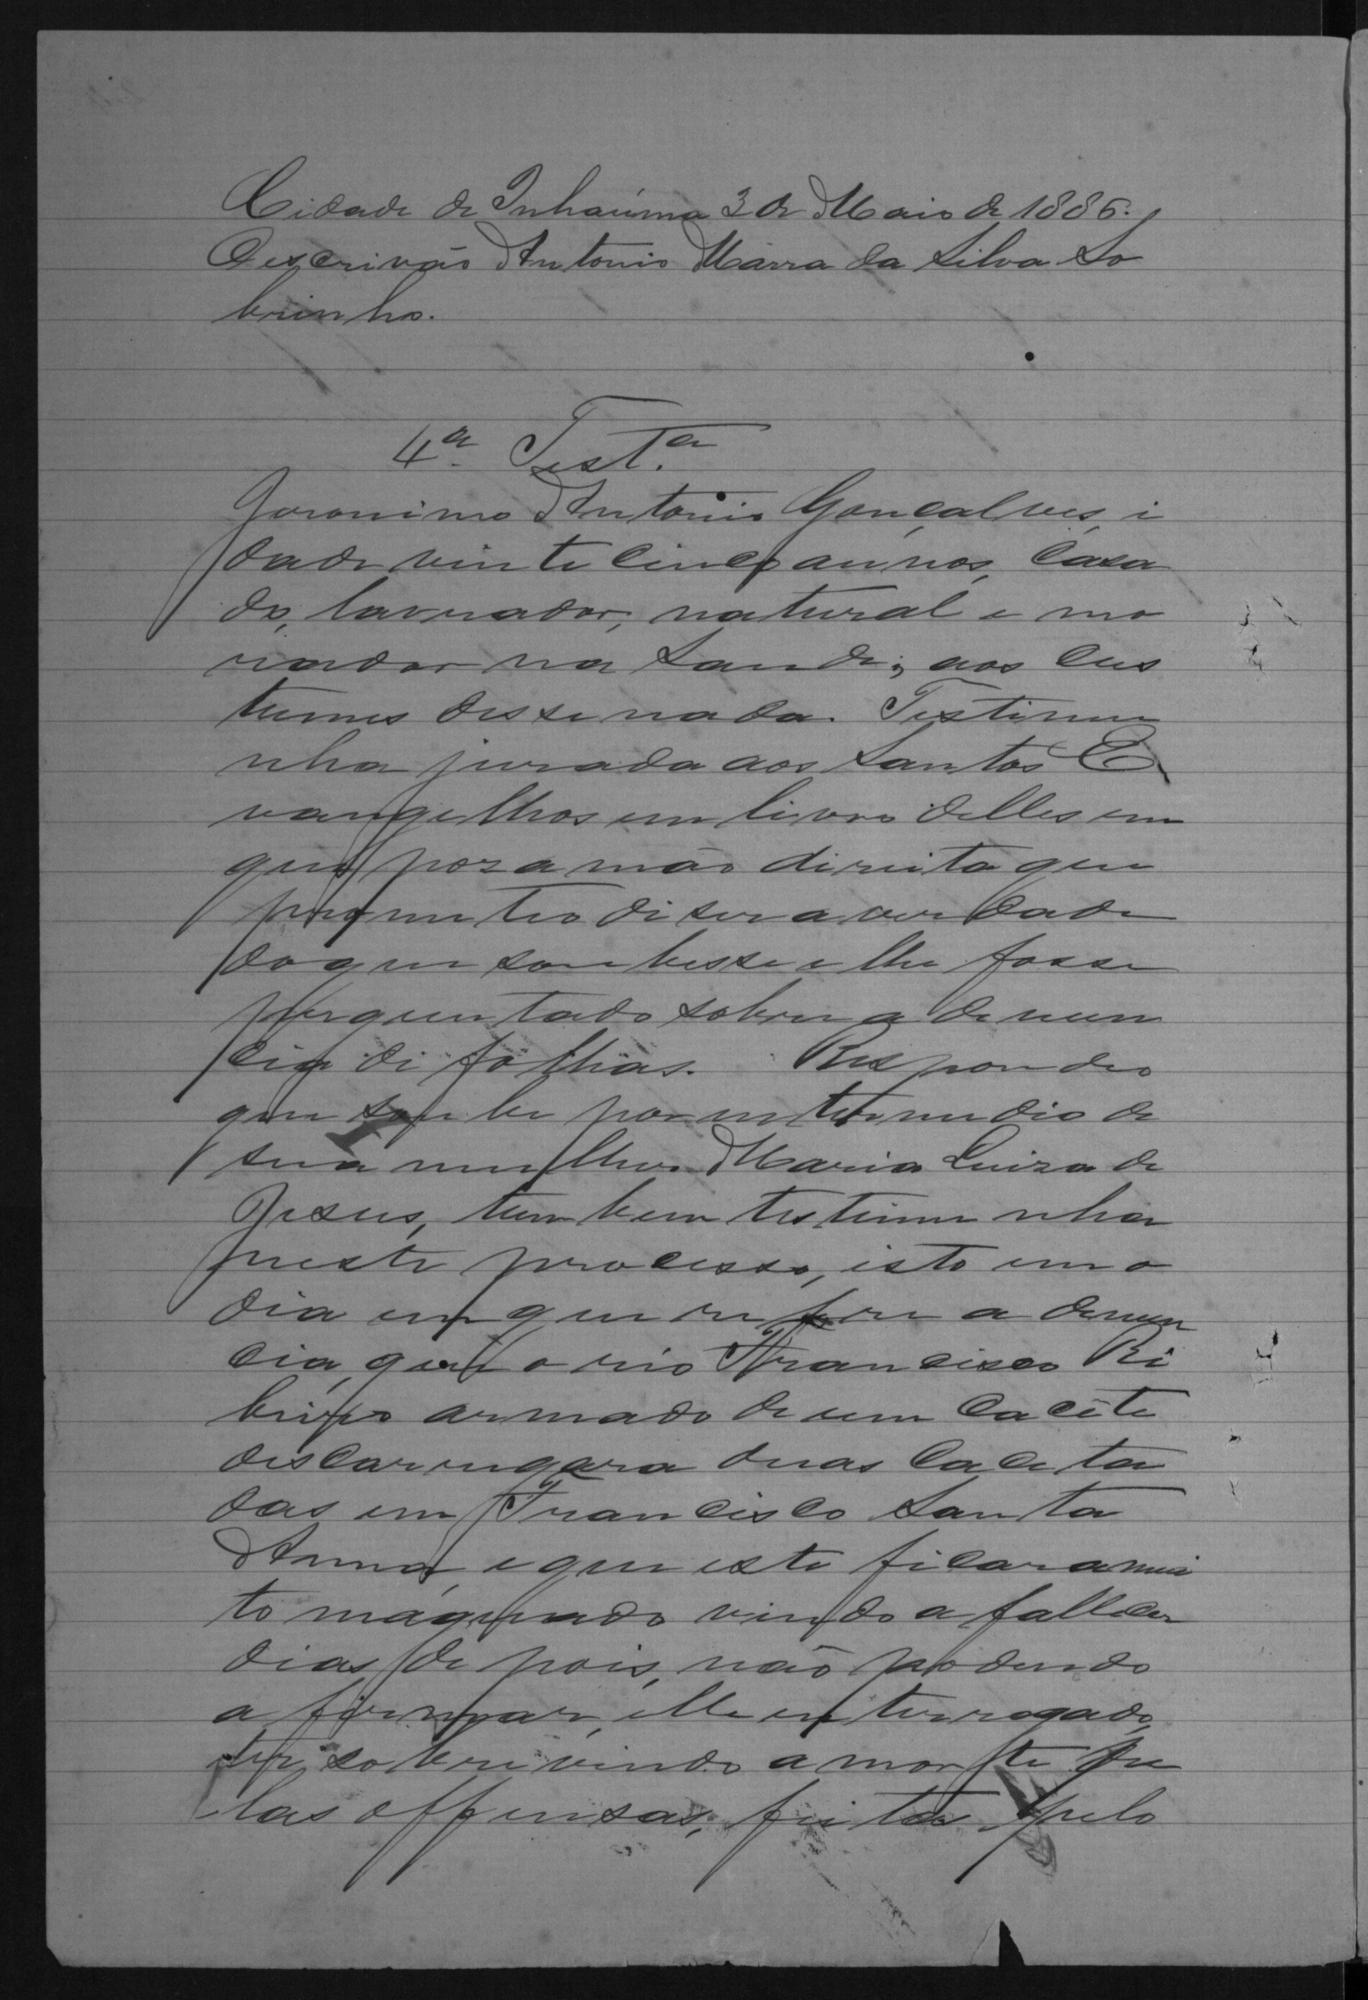 Cidade de Inhaúma 3 de Maio de 1886.
Oescrivão Antonio Marra da Silva So
brinho.
4ª Test.ª
Joronimo Antonio Gonçalves, i
dade vinte cinco annos, casa
do, lavrador, natural e mo
rador na Saude; aos cus
tumes disse nada. Testimu
nha jurada aos Santos E
vangelhos em livro delles em
que poz a mão direita que
prometteo diser a verdade
do que soubesse e lhe fosse
perguntado sobre a denun
cia di folhas. Respondeo
que soube por entermedio de
sua mulher Maria Luiza de
Jesus, tambem testimunha
neste processo, isto em o
dia em que refere a denun
cia, que o reo Francisco Ri
beiro armado de um cacête
discarregara duas caceta
das em Francisco Santa
Anna, e que este ficara mui
to magoado vindo a fallecer
dias de pois, não podendo
a firmar, elle enterrogado,
ter sobrevindo a morte pe
las offensas, feitas pelo